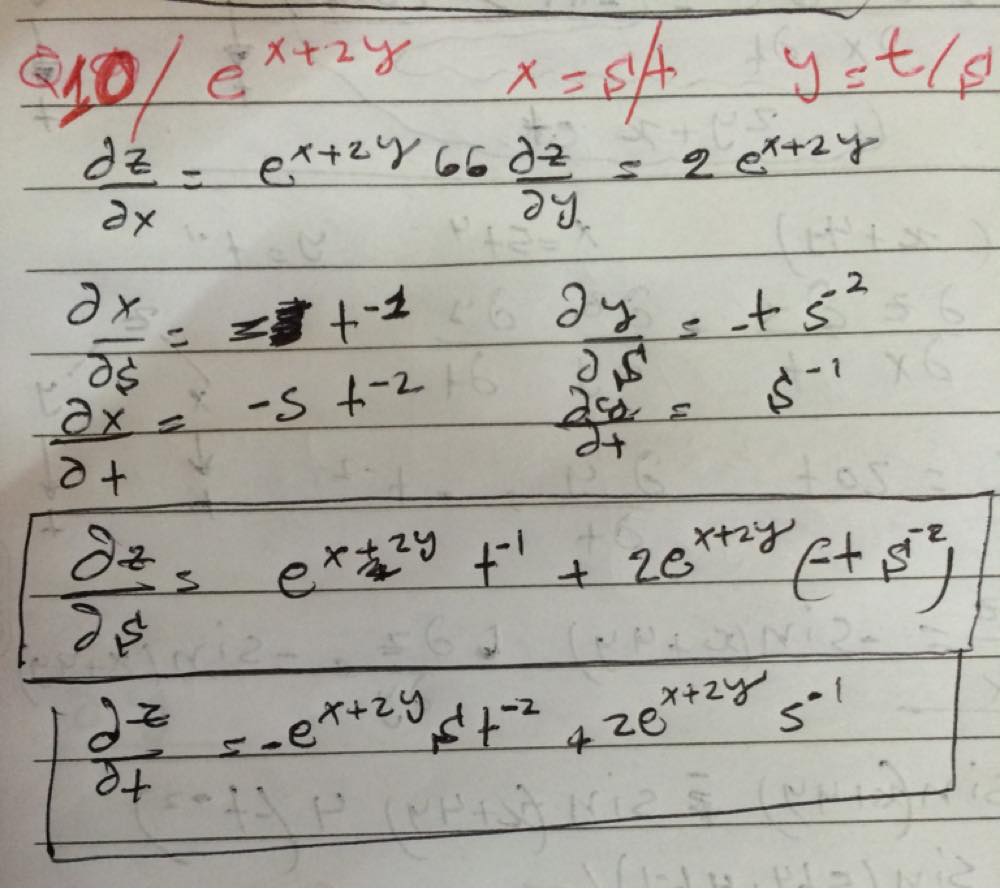 Q10/ e^{x+2y} x = s/t y = t/s
∂z/∂x = e^{x+2y} 66 ∂z/∂y = 2 e^{x+2y}
∂x/∂s = t^{-1} ∂y/∂s = -t s^{-2}
∂x/∂t = -s t^{-2} ∂y/∂t = s^{-1}
∂z/∂s = e^{x+2y} t^{-1} + 2e^{x+2y} (-t s^{-2})
∂z/∂t = -e^{x+2y} s t^{-2} + 2e^{x+2y} s^{-1}